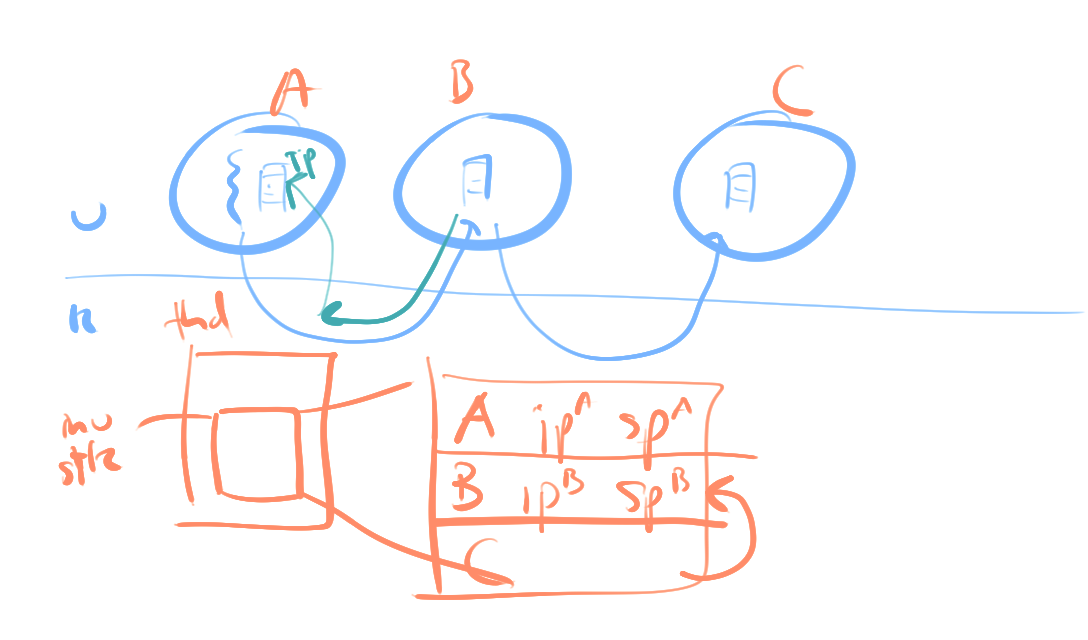 A B C
IP
U
K
thd
inv
stk
A ip^A sp^A
B ip^B sp^B
C